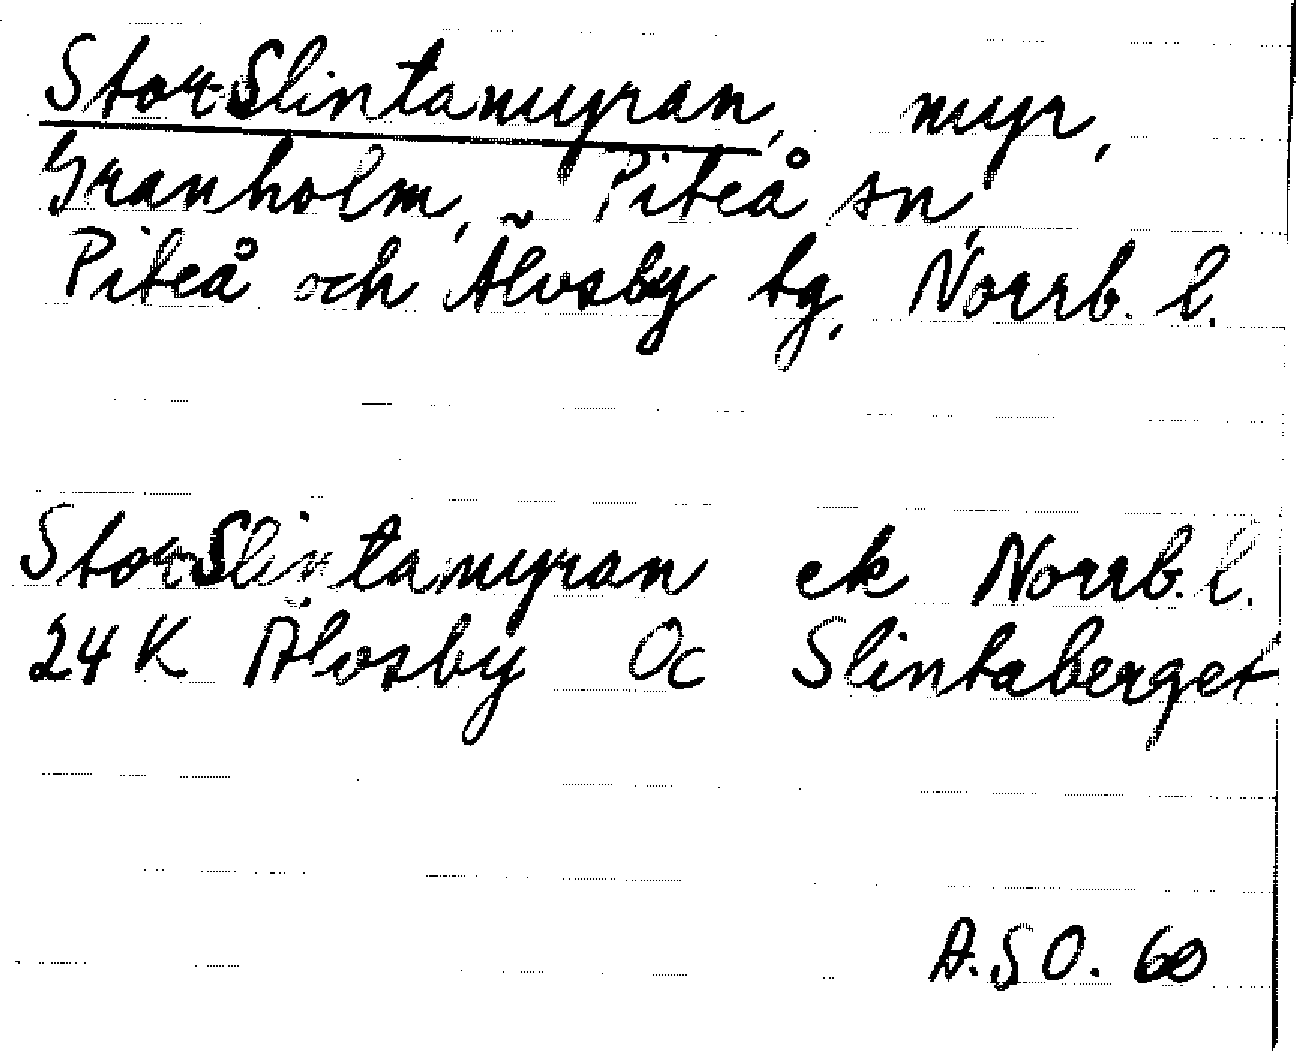 Stor-Slintamyran, myr,
Granholm, Piteå sn,
Piteå och Älvsby tg, Norrb. l.
Stor-Slintamyran ek Norrb. l.
24 K Älvsby 0c Slintaberget
A.S.O. 60